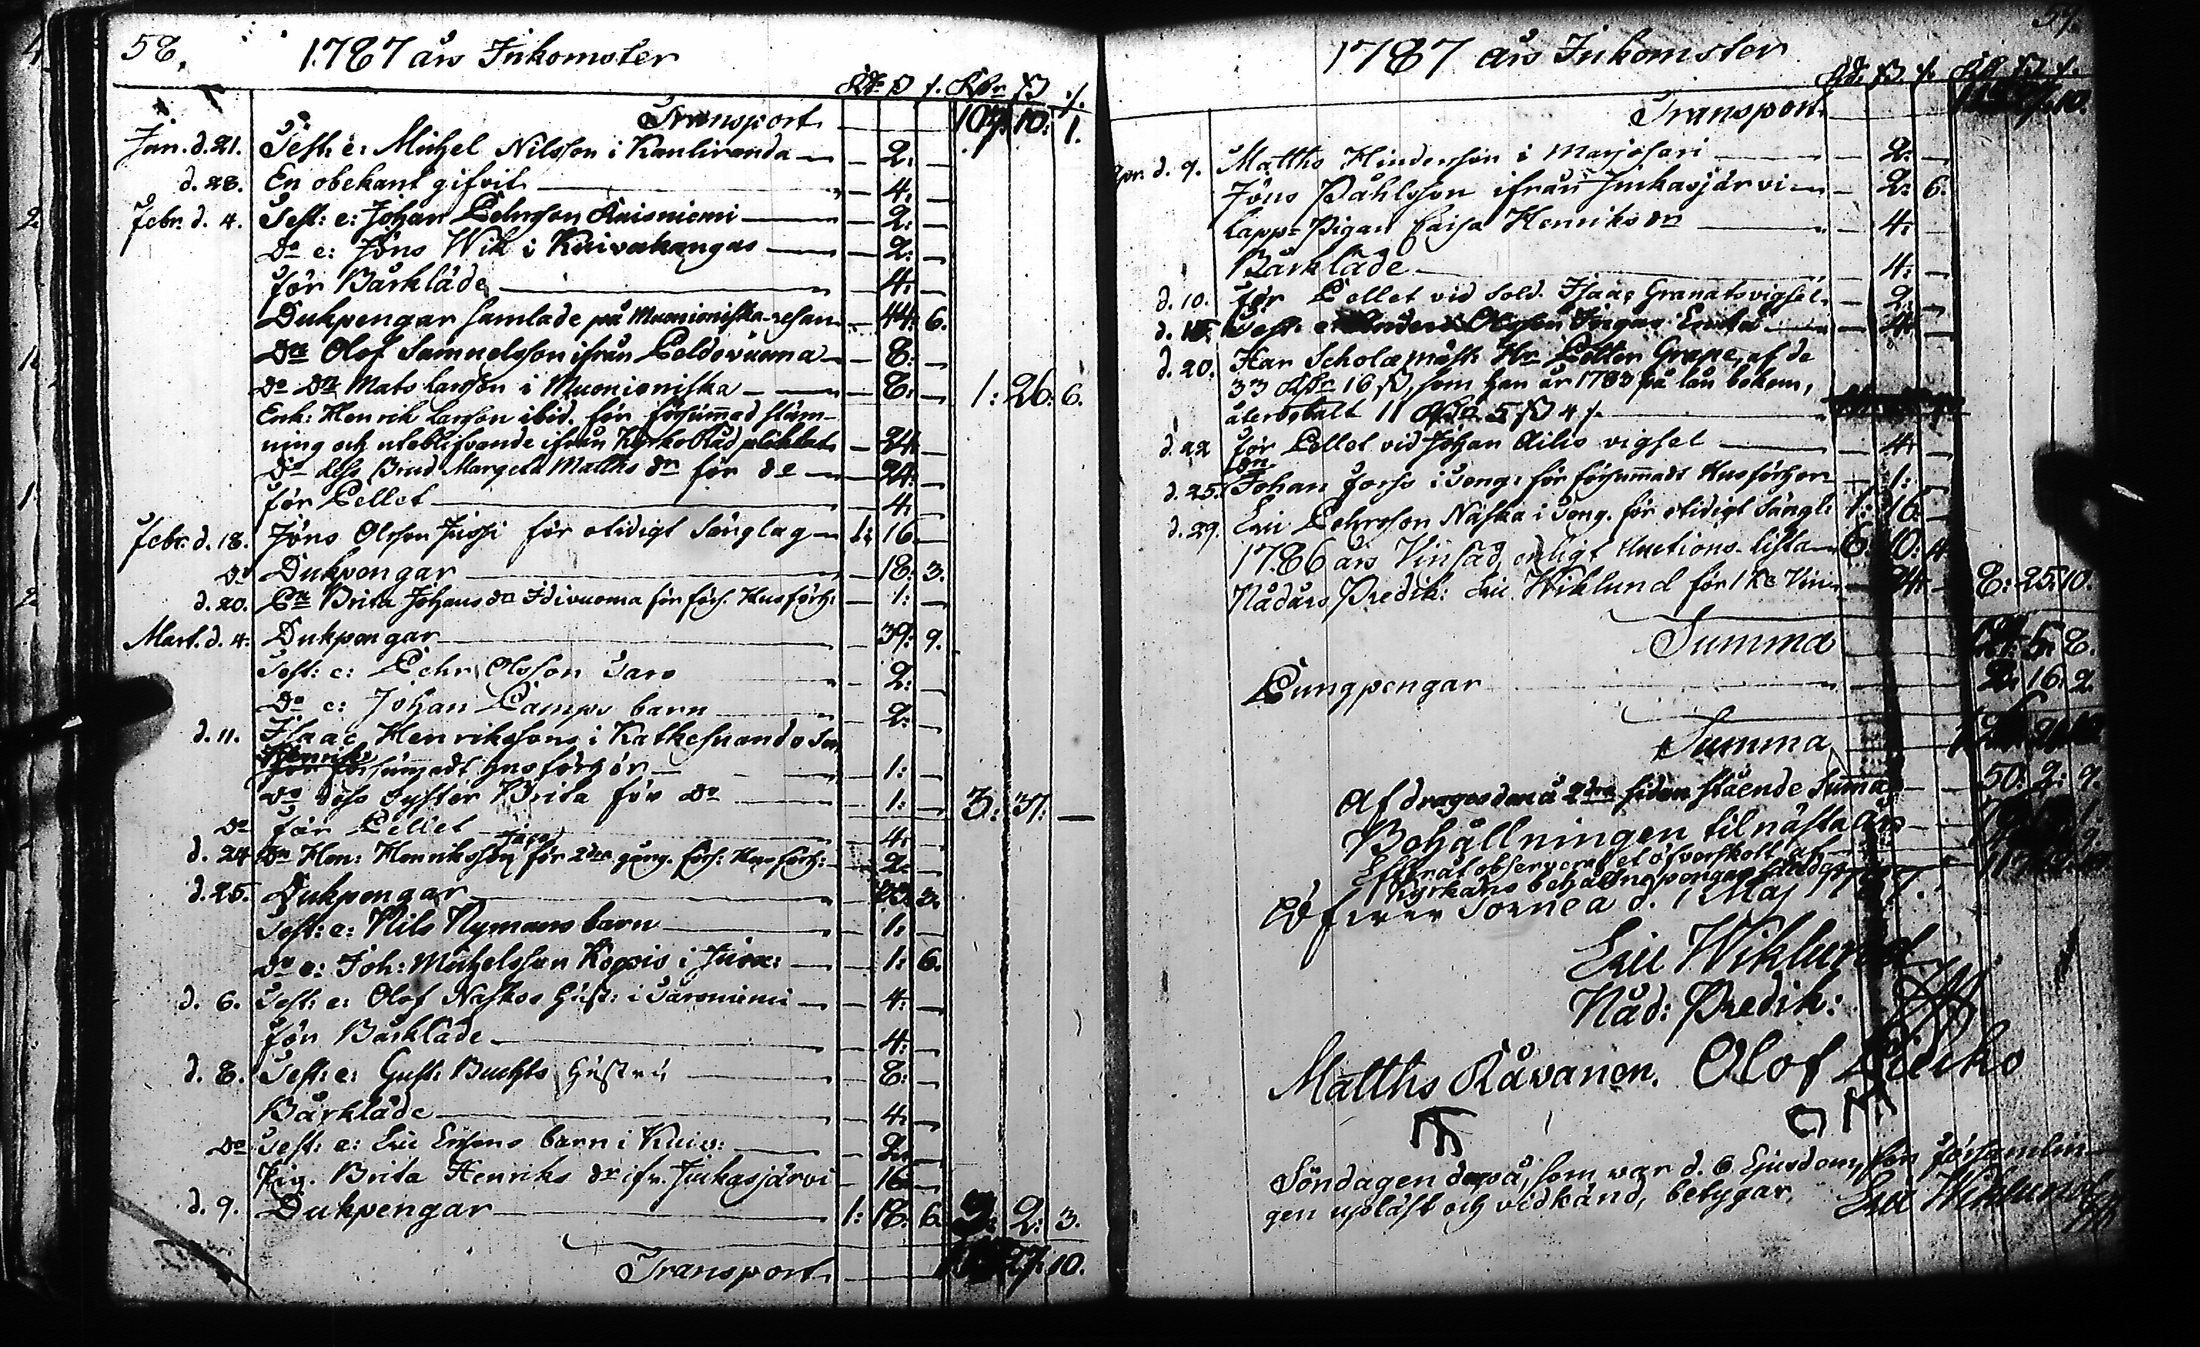 58.
1787 års Inkomster
Rdr ß /. Rdr ß /.
Transport 107: 10: 1.
Jan. d. 21. Test: e: Michel Nilsson i Kauliranda — 2: —
d. 28. En obekant gifvit — 4: —
Febr. d. 4. Test: e: Johan Pehrsson Ruisniemi — 2: —
Do e: Jöns Wik i Kuivakangas — 2: —
för Bårkläde — 4: —
Dukpengar samlade på Muonioniska resan — 44: 6.
Dn Olof Samuelsson ifrån Peldovuoma — 8: —
Do Dn Mats Larsson i Muonioniska — 8: — 1: 26: 6.
Enk: Henrik Larsson ibid. för försummad stäm-
ning och uteblifvande ifrån Kyrko Råd — 24: —
Do dess Brud Margeta Matths dr för do — 24: —
för Pellet — 4: —
Febr. d. 18. Jöns Olsson Jussi för otidigt Sänglag — 1: 16. —
Do Dukpengar — 18: 3.
d. 20. Brita Johans dr Idivuoma för förs. Husförh: — 1: —
Mart. d. 4. Dukpengar — 39: 9.
Test: e: Pehr Olsson Vars — 2: —
Do e: Johan Lamps barn — 2: —
d. 11. Isaac Henrikssons i Kathesuando Son
Henrik för försummadt husförhör — 1: —
Do dess syster Brita för Do — 1: — 3: 37: —
Do för Pellet — 4: —
d. 24 Dn Hen: Henriksson för 2dra gång. förs: Husförh: — 2: —
d. 25. Dukpengar — 3.
Test: e: Nils Nymans barn — 1: —
Do e: Joh: Michelsson Koppis i — 1: 6.
d. 6. Test: e: Olof Naskos hust: i Säroniemi — 4: —
för Bårkläde — 4: —
d. 8. Test: e: Gust: Buchts Hustru — 8: —
Bårkläde — 4: —
Do Test: e: Eric Ersons barn i Kuiv: — 2: —
Pig. Brita Henriks dr ifr. Juckasjärvi — 16 —
d. 9. Dukpengar — 1: 18: 6. 3: 2: 3.
Transport 27: 10.
59.
1787 års Inkomster
Rdr ß /. Rdr ß /.
Transport 27: 10.
Apr. d. 9. Matths Hindersson i Marjosari — 2: —
Jöns Påhlsson ifrån Juckasjärvi — 2: 6.
Lapp-Pigan Caisa Henriks dr — 4: —
Bårkläde — 4: —
d. 10. för Pellet vid Sold. Isaac Granats vigsel — 2: —
d. 15. Test: e: Anders Olsson — 24
d. 20. Har Scholæmäst: Hr Petter Grape, af de
33 Rdr 16 ß, som han år 1783 på lån bekom,
återbetalt 11 Rdr 5 ß 4 /.
d. 22 för Pellet vid Johan Ailis vigsel — 4: —
d. 25. Dn Johan Forss i Seng: för försummadt Husförhör — 1: —
d. 29. Eric Pehrsson Naska i Seng. för otidigt Sängl: 1: 16. —
1786 års Vinsåd, enligt Auctions-lista 6: 10: 4
Nådårs Predik: Eric Wiklund för 1 Ka Vin — 24: — 8: 25: 10.
Summa 5: 8.
Pungpengar 2: 16: 2.
Summa
Afdrages den å 2dra sidan stående Summa — 50: 2: 9.
Behållningen til nästa år
Öfver Torneå d. 1 Maj 1787.
Eric Wiklund
Nåd: Predik:
Matths Råvanen. Olof
Söndagen derpå, som var d. 6 Ejusdem, för församlin-
gen upläst och vidkänd, betygar
Eric Wiklund